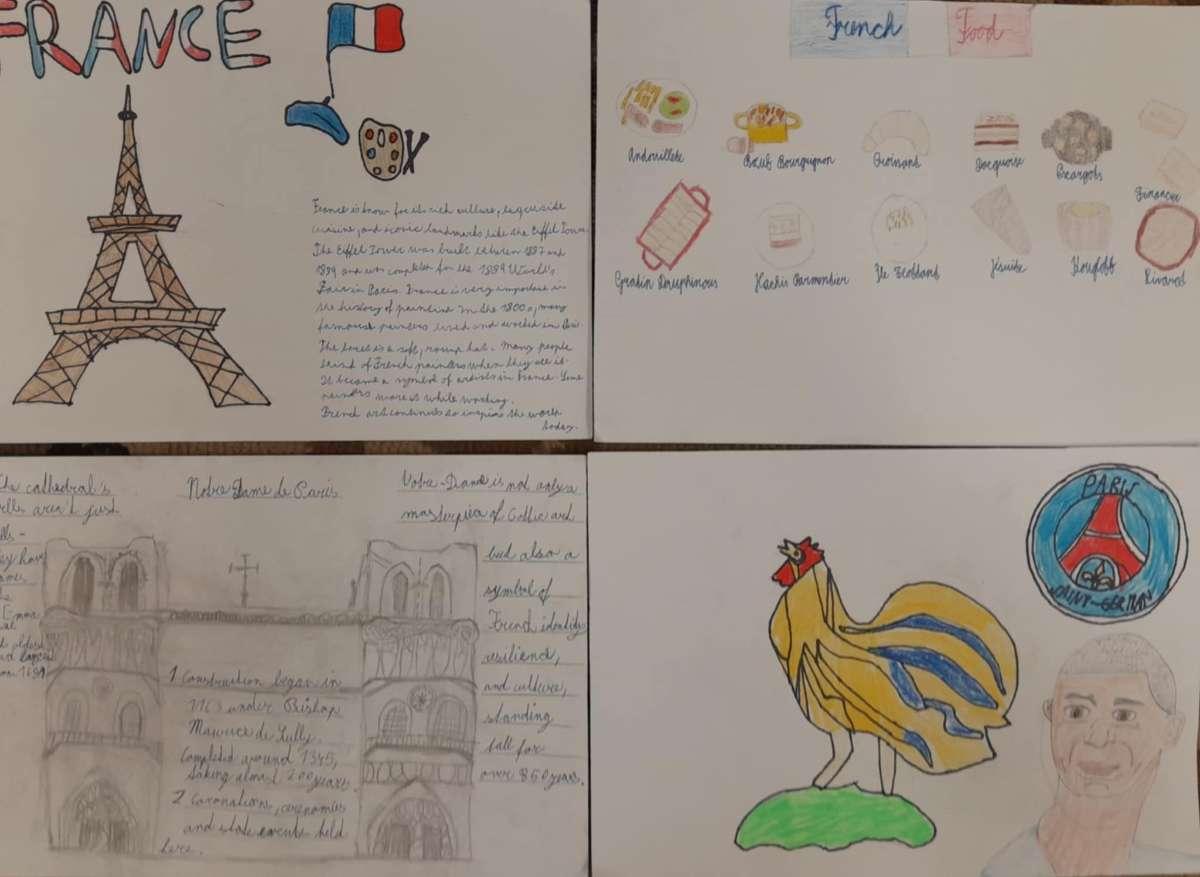 FRANCE
France is know for its rich culture, exquiside
cuisine, and iconic landmarks like the Eiffel Tower.
The Eiffel Tower was built between 1887 and
1889 and was completed for the 1889 World's
Fair in Paris. France is very important in
the history of painting. In the 1800s, many
famous painters lived and worked in Paris
The beret is a soft, round hat. Many people
think of French painters when they see it.
It became a symbol of artists in France. Some
painters wore it while working.
French art continues to inspire the world
today.
French Food
Andouillete
Bœuf Bourguignon
Croissant
Jacquoise
Escargots
Financier
Gratin Dauphinous
Hachis Parmentier
Ile Flottant
Kouglofs
Livarod
The cathedral's
bells aren't just
bells -
they have
names
the
Emma
oldest
and largest
Notre Dame de Paris
1 Construction began in
1163 under Bishop
Maurice de Sully.
Completed around 1345,
taking almost 200 years.
2 Coronations, ceremonies
and state events held
here.
Notre-Dame is not only a
masterpiece of Gothic art
but also a
symbol of
French identity
resilience,
and culture,
standing
tall for
over 860 years.
PARIS
SAINT-GERMAIN